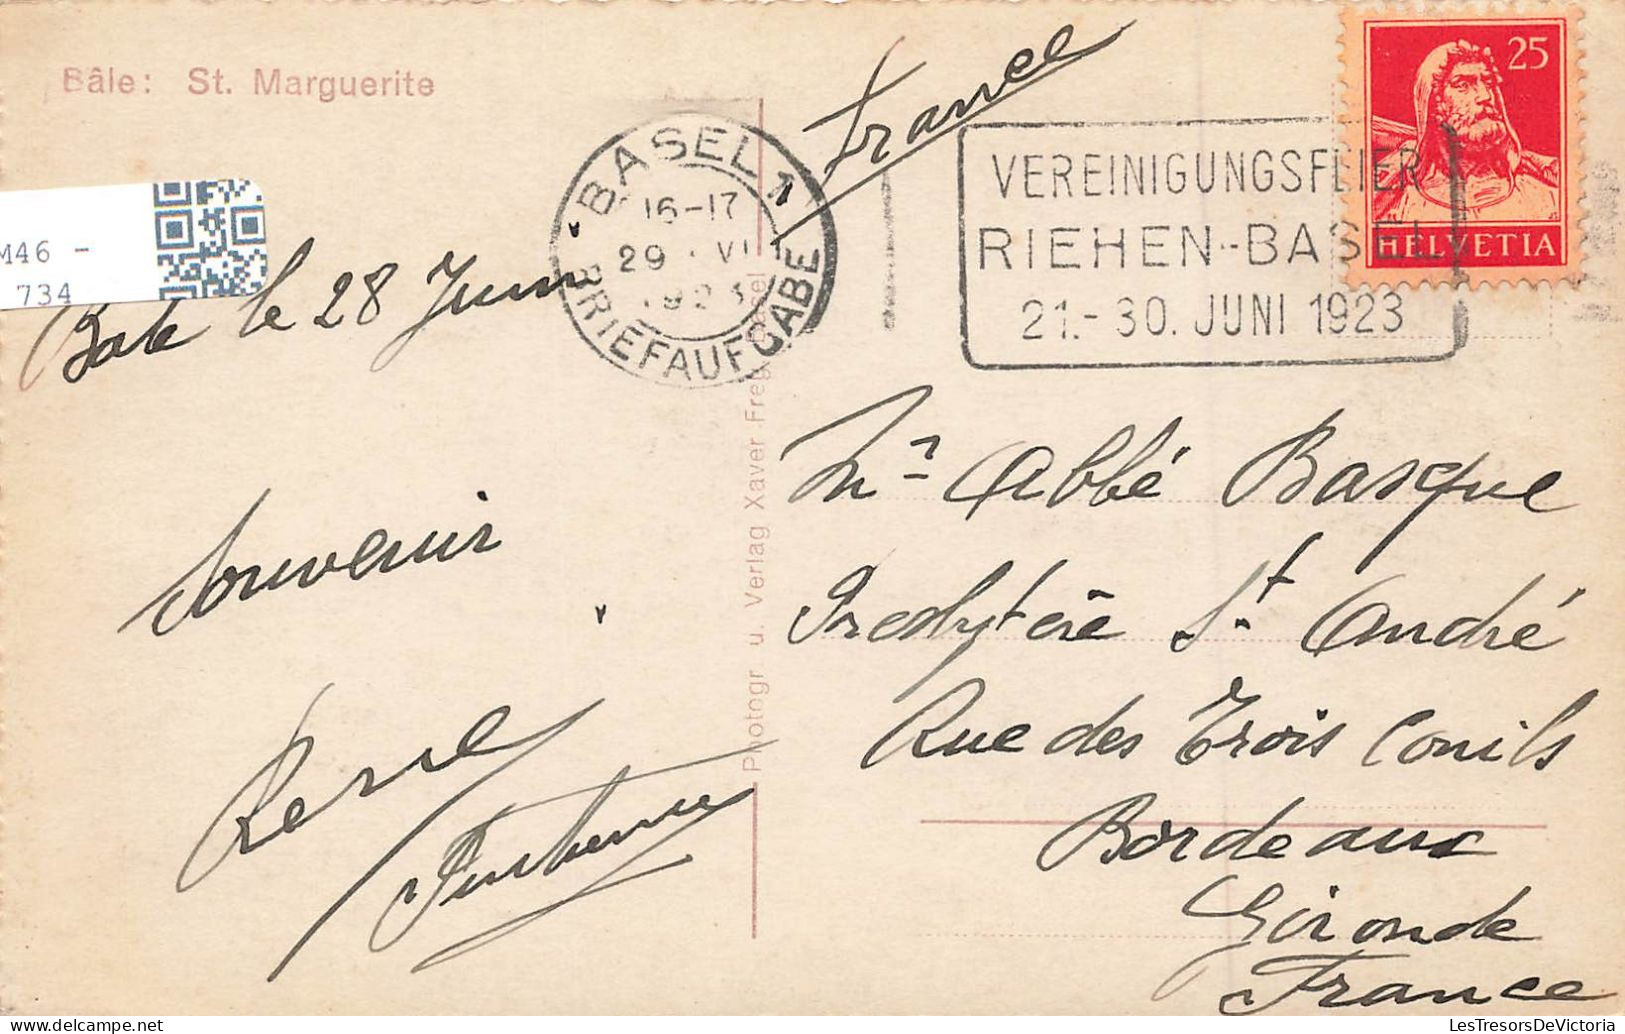 Bâle: St. Marguerite
France
BASEL 1
16-17
29. VI
1923
BRIEFAUFGABE
VEREINIGUNGSFEIER
RIEHEN-BASEL
21.-30. JUNI 1923
25
HELVETIA
M46 -
734
Bale le 28 Juin
Souvenir
Mr Abbé Basque
Presbytère St. André
Rue des Trois Conils
Bordeaux
Gironde
France
Photogr u. Verlag Xaver Frey Basel
LesTresorsDeVictoria